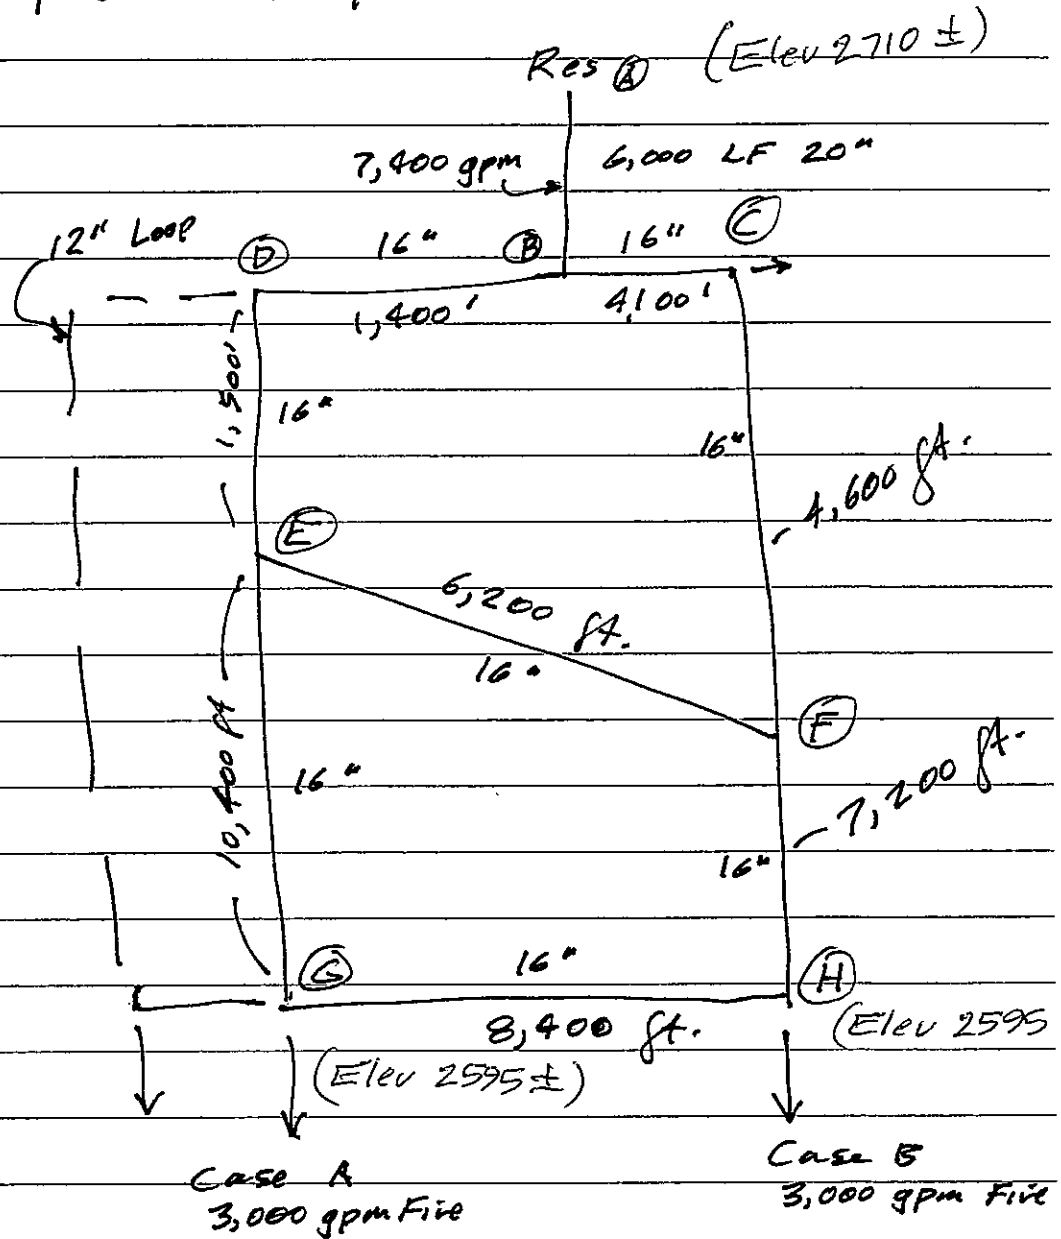 Res Ⓐ (Elev 2710 ±)
7,400 gpm 6,000 LF 20"
12" Loop Ⓓ 16" Ⓑ 16" Ⓒ
1,400' 4,100'
1,500'
16"
16"
4,600 ft.
Ⓔ
6,200 ft.
16"
Ⓕ
10,400 ft
16"
7,200 ft.
16"
Ⓖ 16" Ⓗ
8,400 ft. (Elev 2595
(Elev 2595 ±)
Case A
3,000 gpm Fire
Case B
3,000 gpm Fire